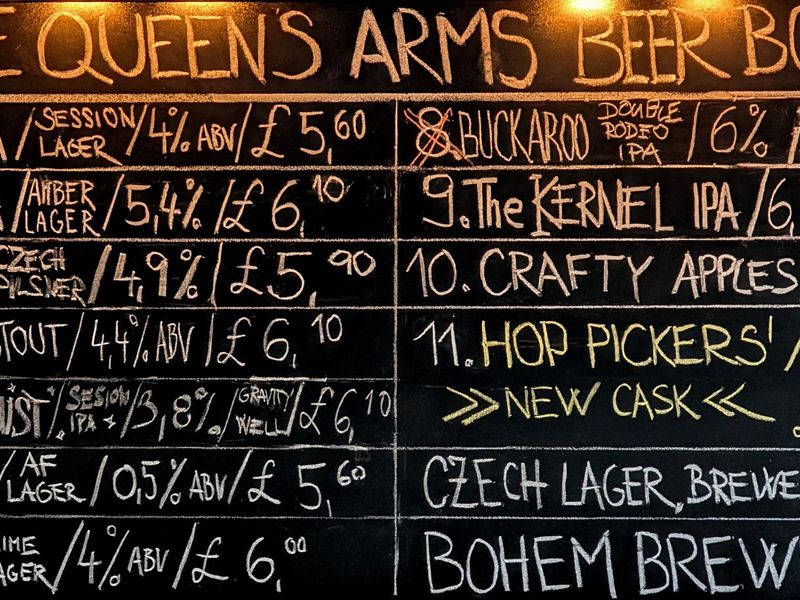 E QUEEN'S ARMS BEER BO
/ SESSION LAGER / 4% ABV / £5,60
/ AMBER LAGER / 5,4% / £6,10
CZECH PILSNER / 4,9% / £5,90
TOUT / 4,4% ABV / £6,10
IST / SESION IPA / 3,8% / GRAVITY WELL / £6,10
/ AF LAGER / 0,5% ABV / £5,60
IME AGER / 4% ABV / £6,00
8. BUCKAROO DOUBLE RODEO IPA / 6%
9. The KERNEL IPA / 6,
10. CRAFTY APPLES
11. HOP PICKERS' /
>> NEW CASK <<
CZECH LAGER, BREWE
BOHEM BREW